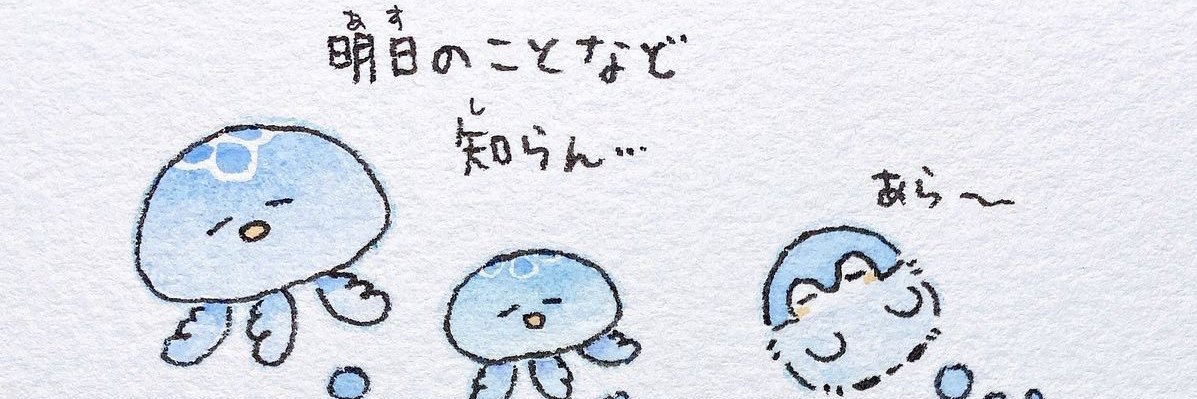 明日のことなど
知らん…
あら〜